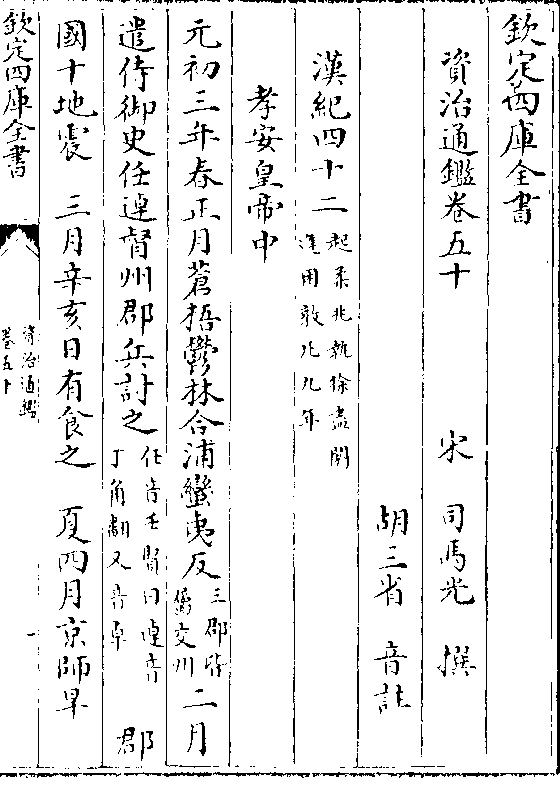 欽定四庫全書
資治通鑑卷五十 宋 司馬光 撰
胡三省 音註
漢紀四十二 起柔兆執徐盡閼逢困敦凡九年
孝安皇帝中
元初三年春正月蒼梧鬱林合浦蠻夷反 三郡皆屬交州 二月
遣侍御史任逴督州郡兵討之 任音壬賢曰逴音丁角翻又音卓 郡
國十地震 三月辛亥日有食之 夏四月京師旱
欽定四庫全書
資治通鑑
卷五十
一